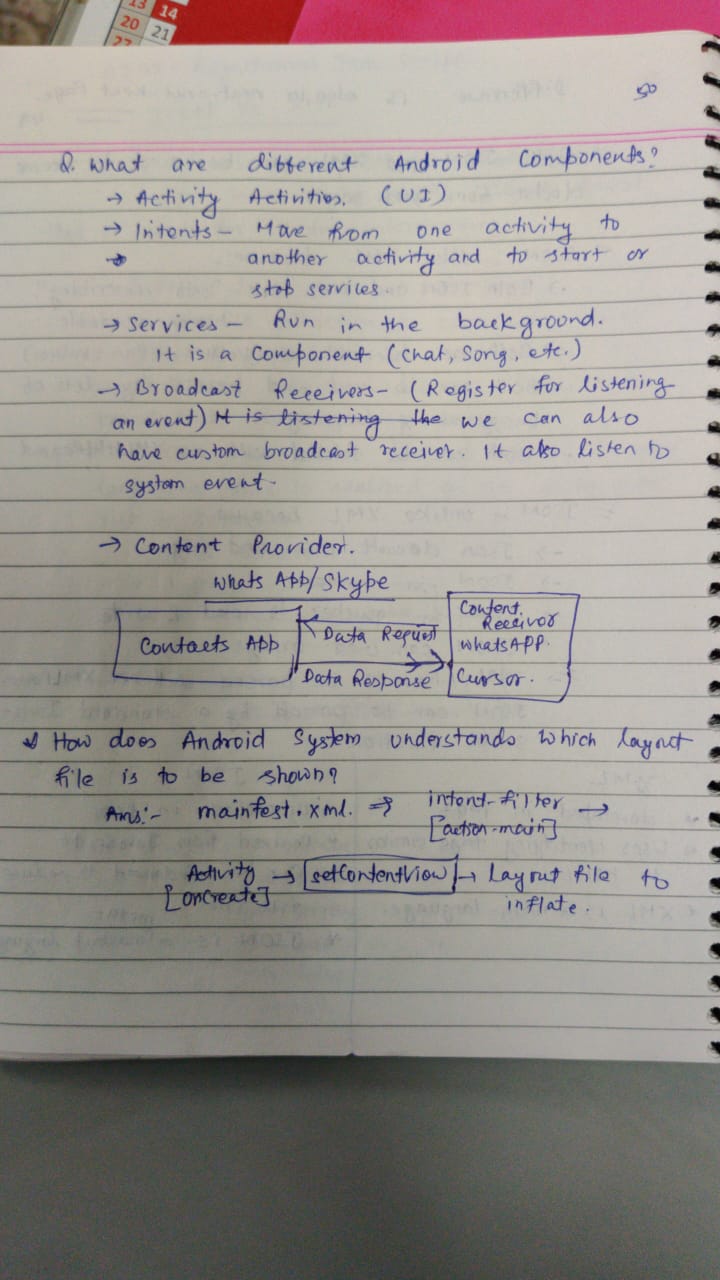 13 14
20 21
27
50
Q. What are different Android Components?
→ Activity Activities. (UI)
→ Intents - Move from one activity to
→ another activity and to start or
stop services.
→ Services - Run in the background.
It is a Component (Chat, Song, etc.)
→ Broadcast Receivers - (Register for listening
an event) It is listening the we can also
have custom broadcast receiver. It also listen to
system event.
→ Content Provider.
Whats App/Skype
Contacts App
Data Request
Data Response
Content
Receiver
WhatsAPP.
Cursor.
How does Android System understands which layout
file is to be shown?
Ans:- mainfest.xml. ⇒ intent-filter →
[action-main]
Activity → setContentView → Layout file to
[onCreate] inflate.